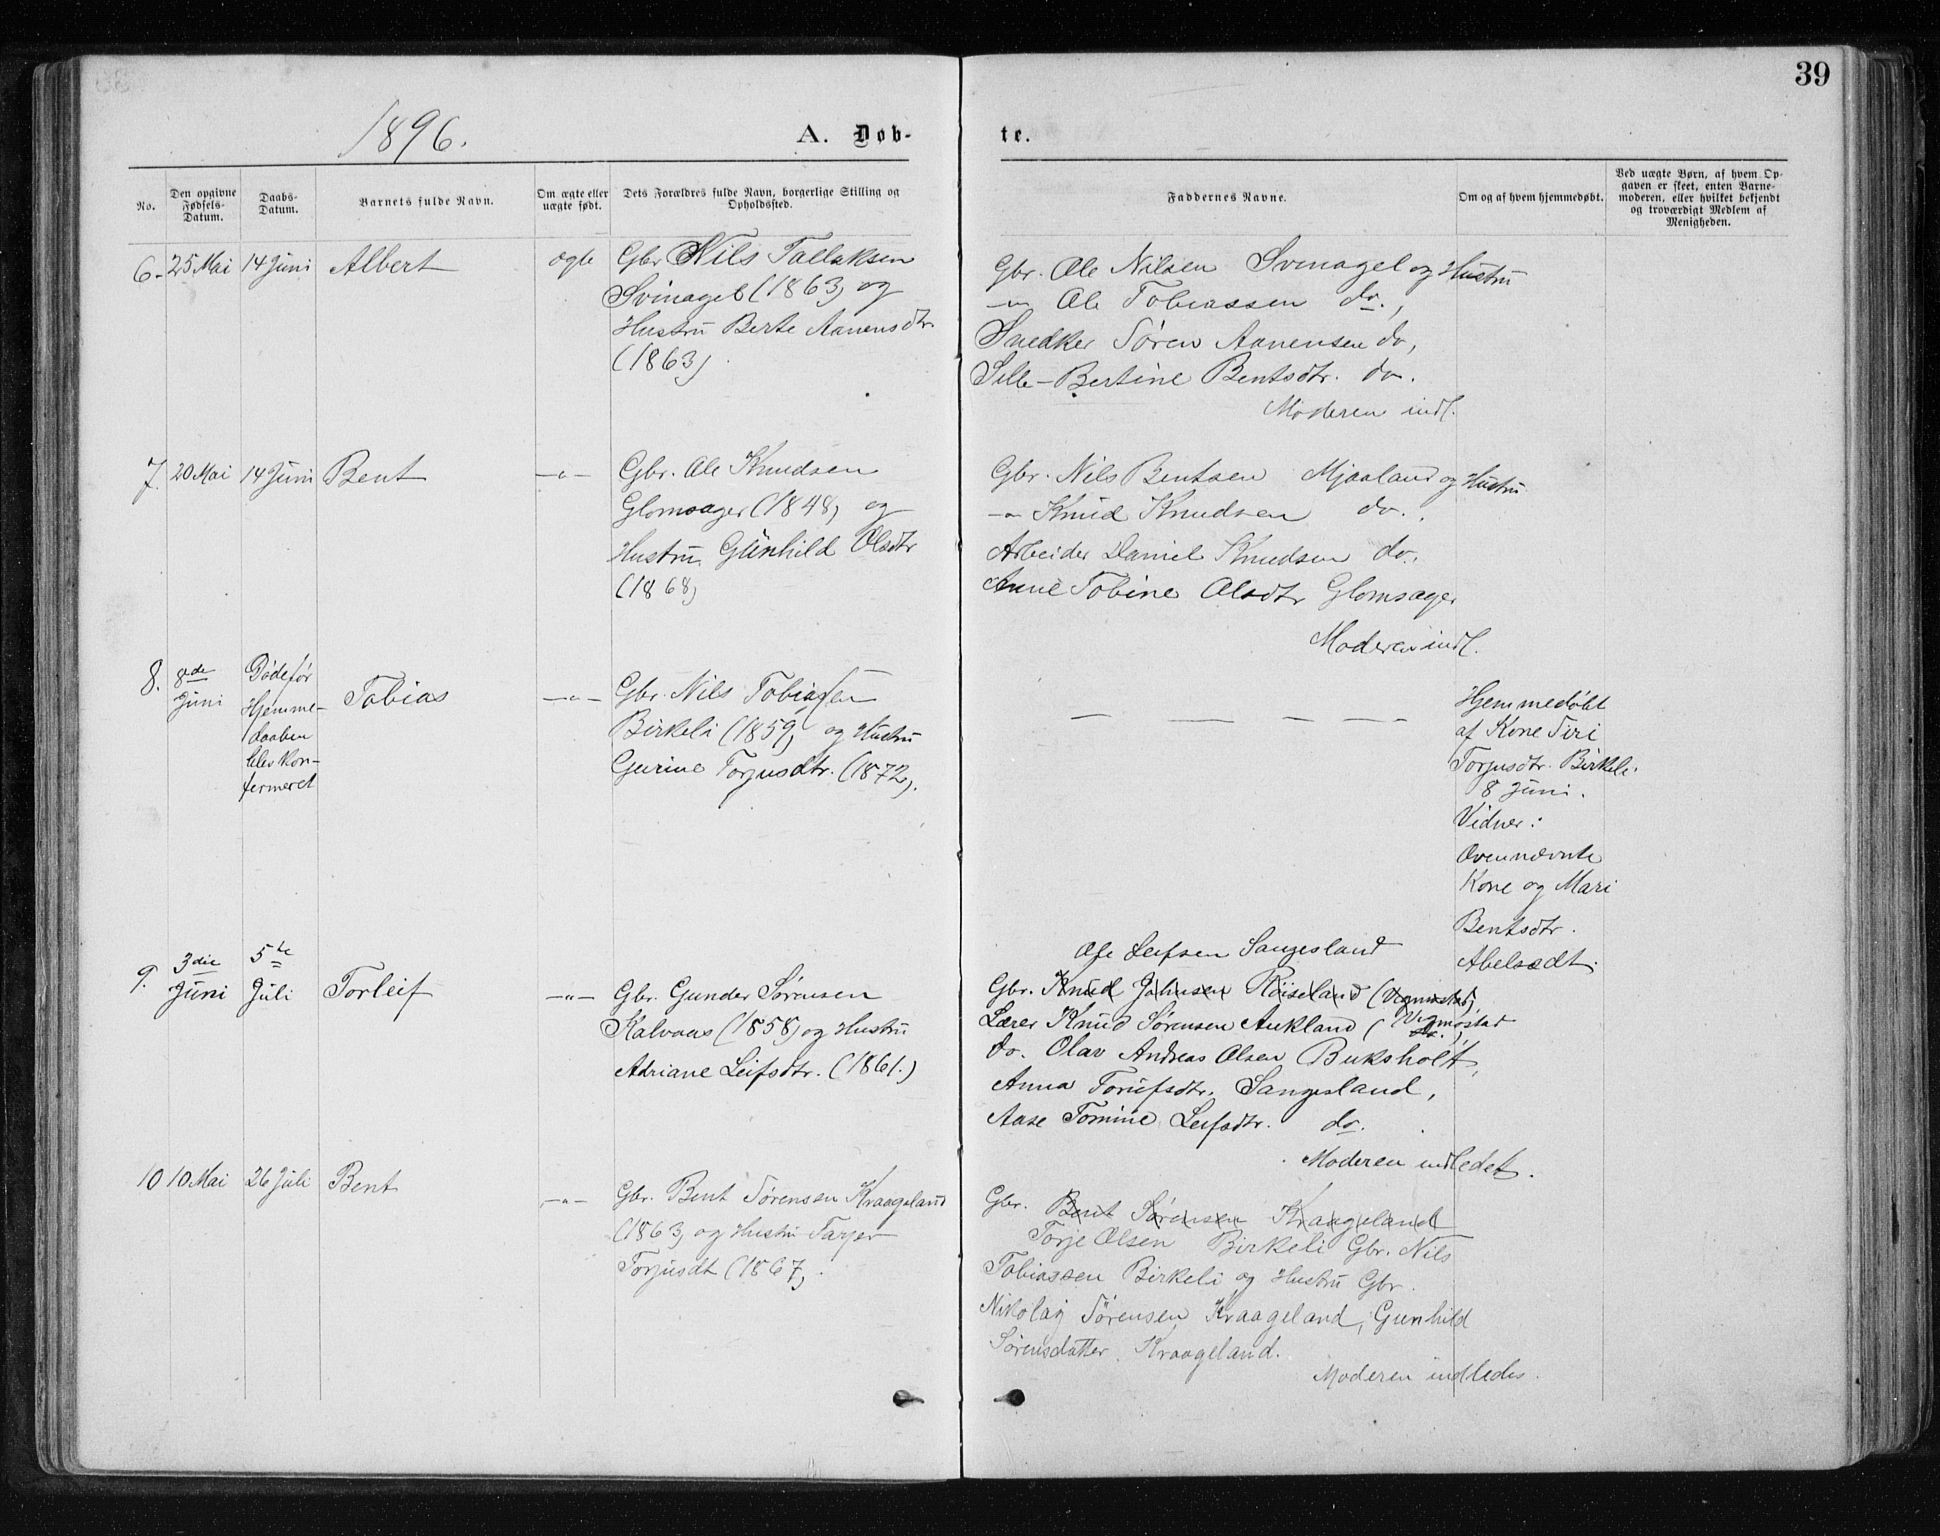 39
1896.
A. Døb-
te.
No.
Den opgivne Fødsels-Datum.
Daabs-Datum.
Barnets fulde Navn.
Om ægte eller uægte født.
Dets Forældres fulde Navn, borgerlige Stilling og Opholdssted.
Faddernes Navne.
Om og af hvem hjemmedøbt.
Ved uægte Børn, af hvem Op-
gaven er skeet, enten Barne-
moderen, eller hvilket bekjendt
og troværdigt Medlem af
Menigheden.
6. 25 Mai 14 Juni Albert ægte Gbr Nils Tallaksen
Svinagel (1863) og
Hustru Berte Aanensdtr.
(1863).
Gbr. Ole Nilsen Svinagel og Hustru
-"- Ole Tobiassen do.,
Snedker Søren Aanensen do,
Sille-Bertine Bentsdtr. do.
Moderen indl.
7. 20 Mai 14 Juni Bent -"- Gbr. Ole Knudsen
Glomsager (1848) og
Hustru Gunhild Olsdtr
(1868)
Gbr. Nils Bentsen Mjaaland og Hustru
-"- Knud Knudsen do.,
Arbeider Daniel Knudsen do.,
Anne Tobine Olsdtr Glomsager
Moderen indl.
8. 8de Juni
Døde før
Hjemme-
daaben
blev kon-
fermeret
Tobias -"- Gbr. Nils Tobiassen
Birkeli (1859) og Hustru
Gurine Torjusdtr. (1872).
— — — — —
Hjemmedøbt
af Kone Siri
Torjusdtr. Birkeli
8 Juni.
Vidner:
Ovennævnte
Kone og Mari
Bentsdtr.
Abelsædt.
9. 3die Juni 5te Juli Torleif -"- Gbr. Gunder Sørensen
Kalvaas (1858) og Hustru
Adriane Leifsdtr. (1861.)
Ole Leifsen Sangesland
Gbr. Knud Johnsen Røiseland (Vegmøstad)
Lærer Knud Sørensen Aukland (Vegmøstad
do. Olav Andreas Olsen Buksholt,
Anna Torjufsdtr. Sangesland,
Aase Tomine Leifsdtr. do.
Moderen indledet.
10 10 Mai 26 Juli Bent -"- Gbr. Bent Sørensen Kraageland
(1863) og Hustru Tarjer
Torjusdt (1867).
Gbr. Bent Sørensen Kraageland
Torje Olsen Birkeli Gbr. Nils
Tobiassen Birkeli og Hustru Gbr.
Nikolaj Sørensen Kraageland, Gunhild
Sørensdatter Kraageland.
Moderen indledes.